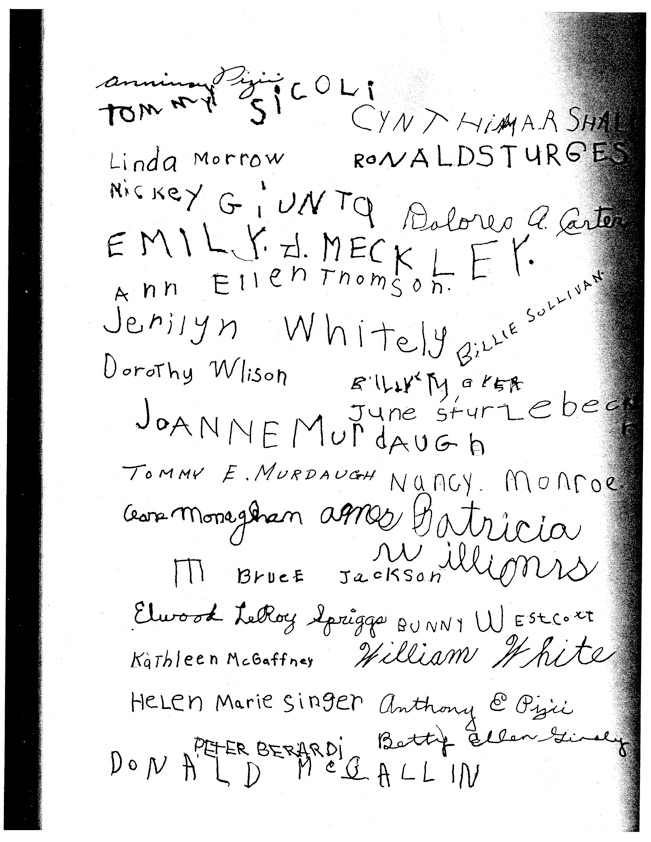 Pizii
TOMMY SICOLI
CYNTHIA MARSHAL
Linda Morrow
RONALD STURGES
Nickey GiUNTA
Dolores A. Carter
EMILY. J. MECKLEY.
Ann Ellen Thomson.
Jerilyn Whitely
BILLIE SULLIVAN.
Dorothy Wlison
JoANNE MurdAUGh
June sturzebeck
TOMMY E. MURDAUGH
Nancy. Monroe.
Monaghan agnes
Patricia
Williams
M Bruce Jackson
Elwood LeRoy Spriggs
BUNNY WEstcott
Kathleen McGaffney
William White
Helen Marie Singer
Anthony E Pizii
PETER BERARDi
Betty Ellen
DONALD McCALLIN